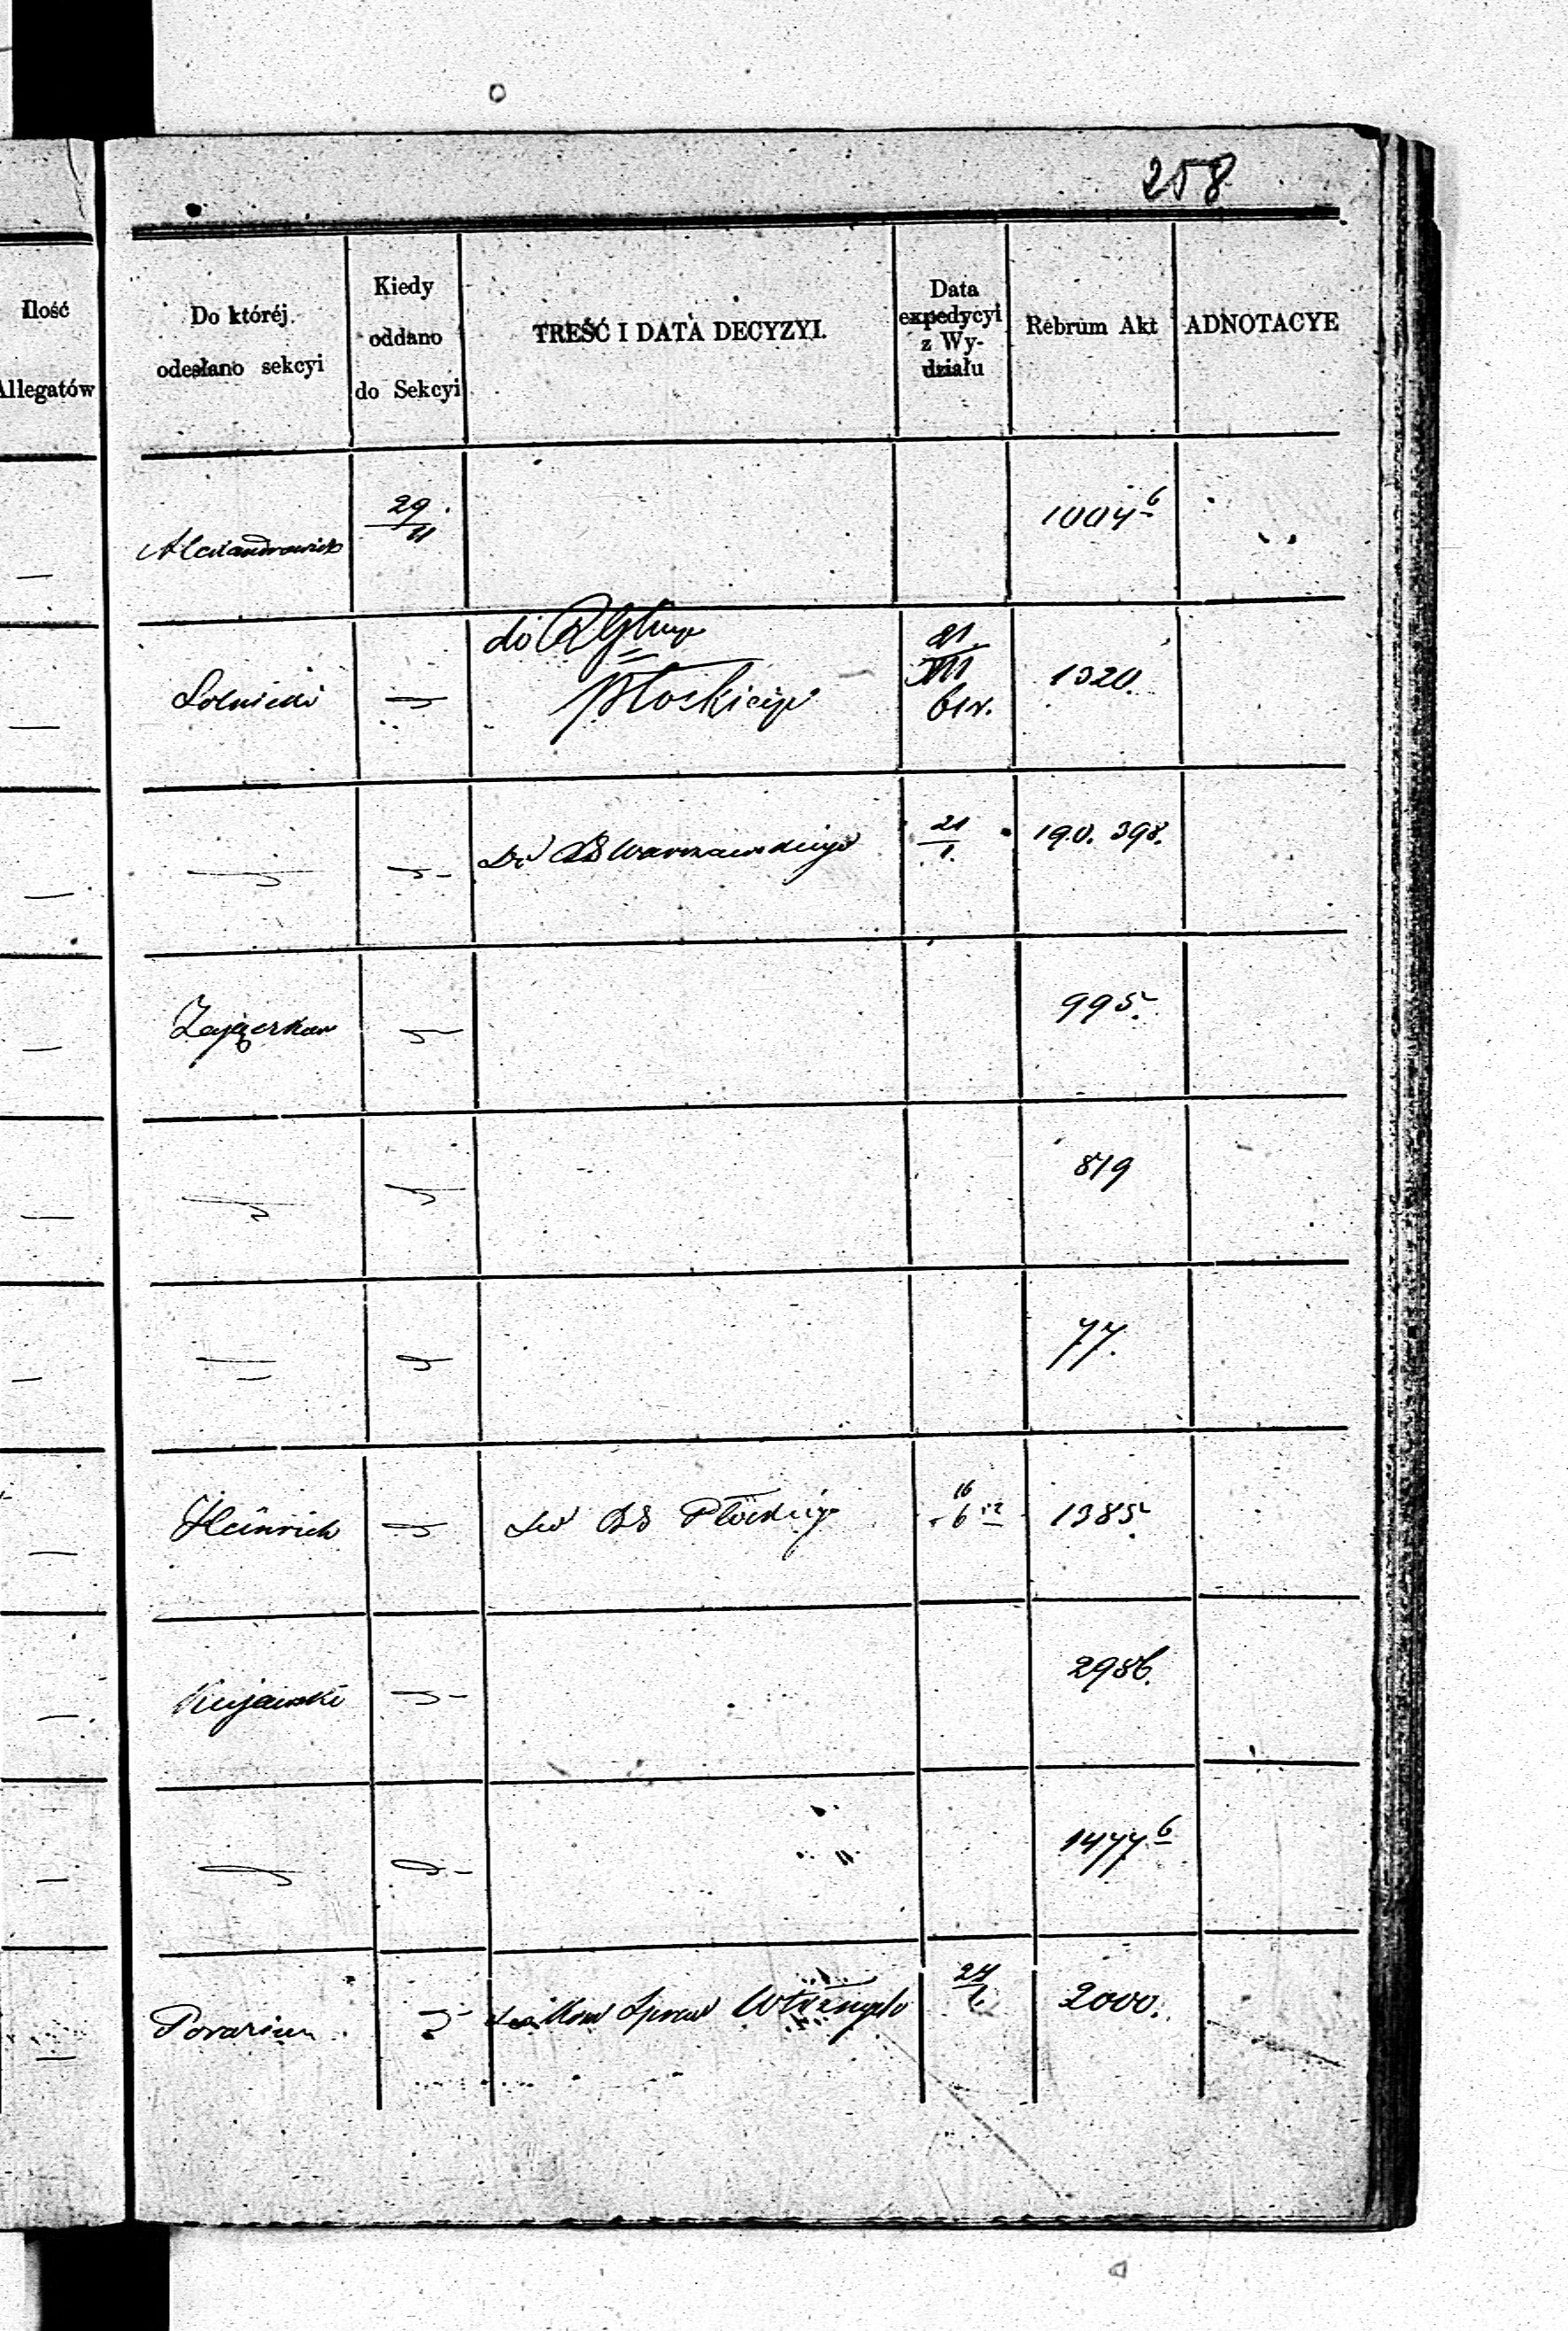 258
Ilość
Allegatów
Do któréj
odesłano sekcyi
Kiedy
oddano
do Sekcyi
TREŚĆ I DATA DECYZYI.
Data
expedycyi
z Wy-
działu
Rebrum Akt
ADNOTACYE
Alexandrowicz
29/11
1004 6
Solnicki
do
Płockiego
21
XII
1320.
Do Warszawskiego
21/1.
190. 398.
Zajączkow
995.
819
77.
Heinrich
Do Płockiego
16
6 12
1385
Kujawski
2986.
1477 6
do Kom Spraw Wewnętrz
24
2000.